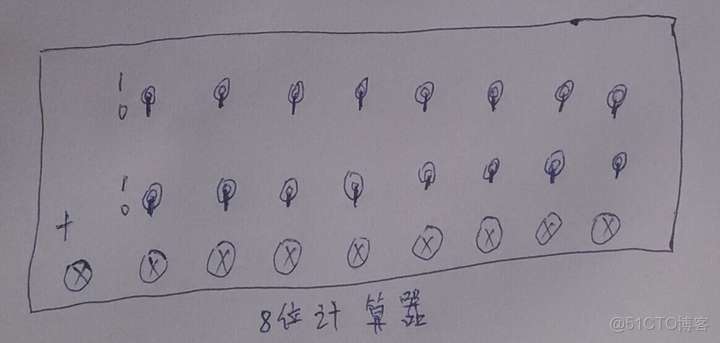 1
0
1
0
+
X X X X X X X X X
8位计算器
@51CTO博客